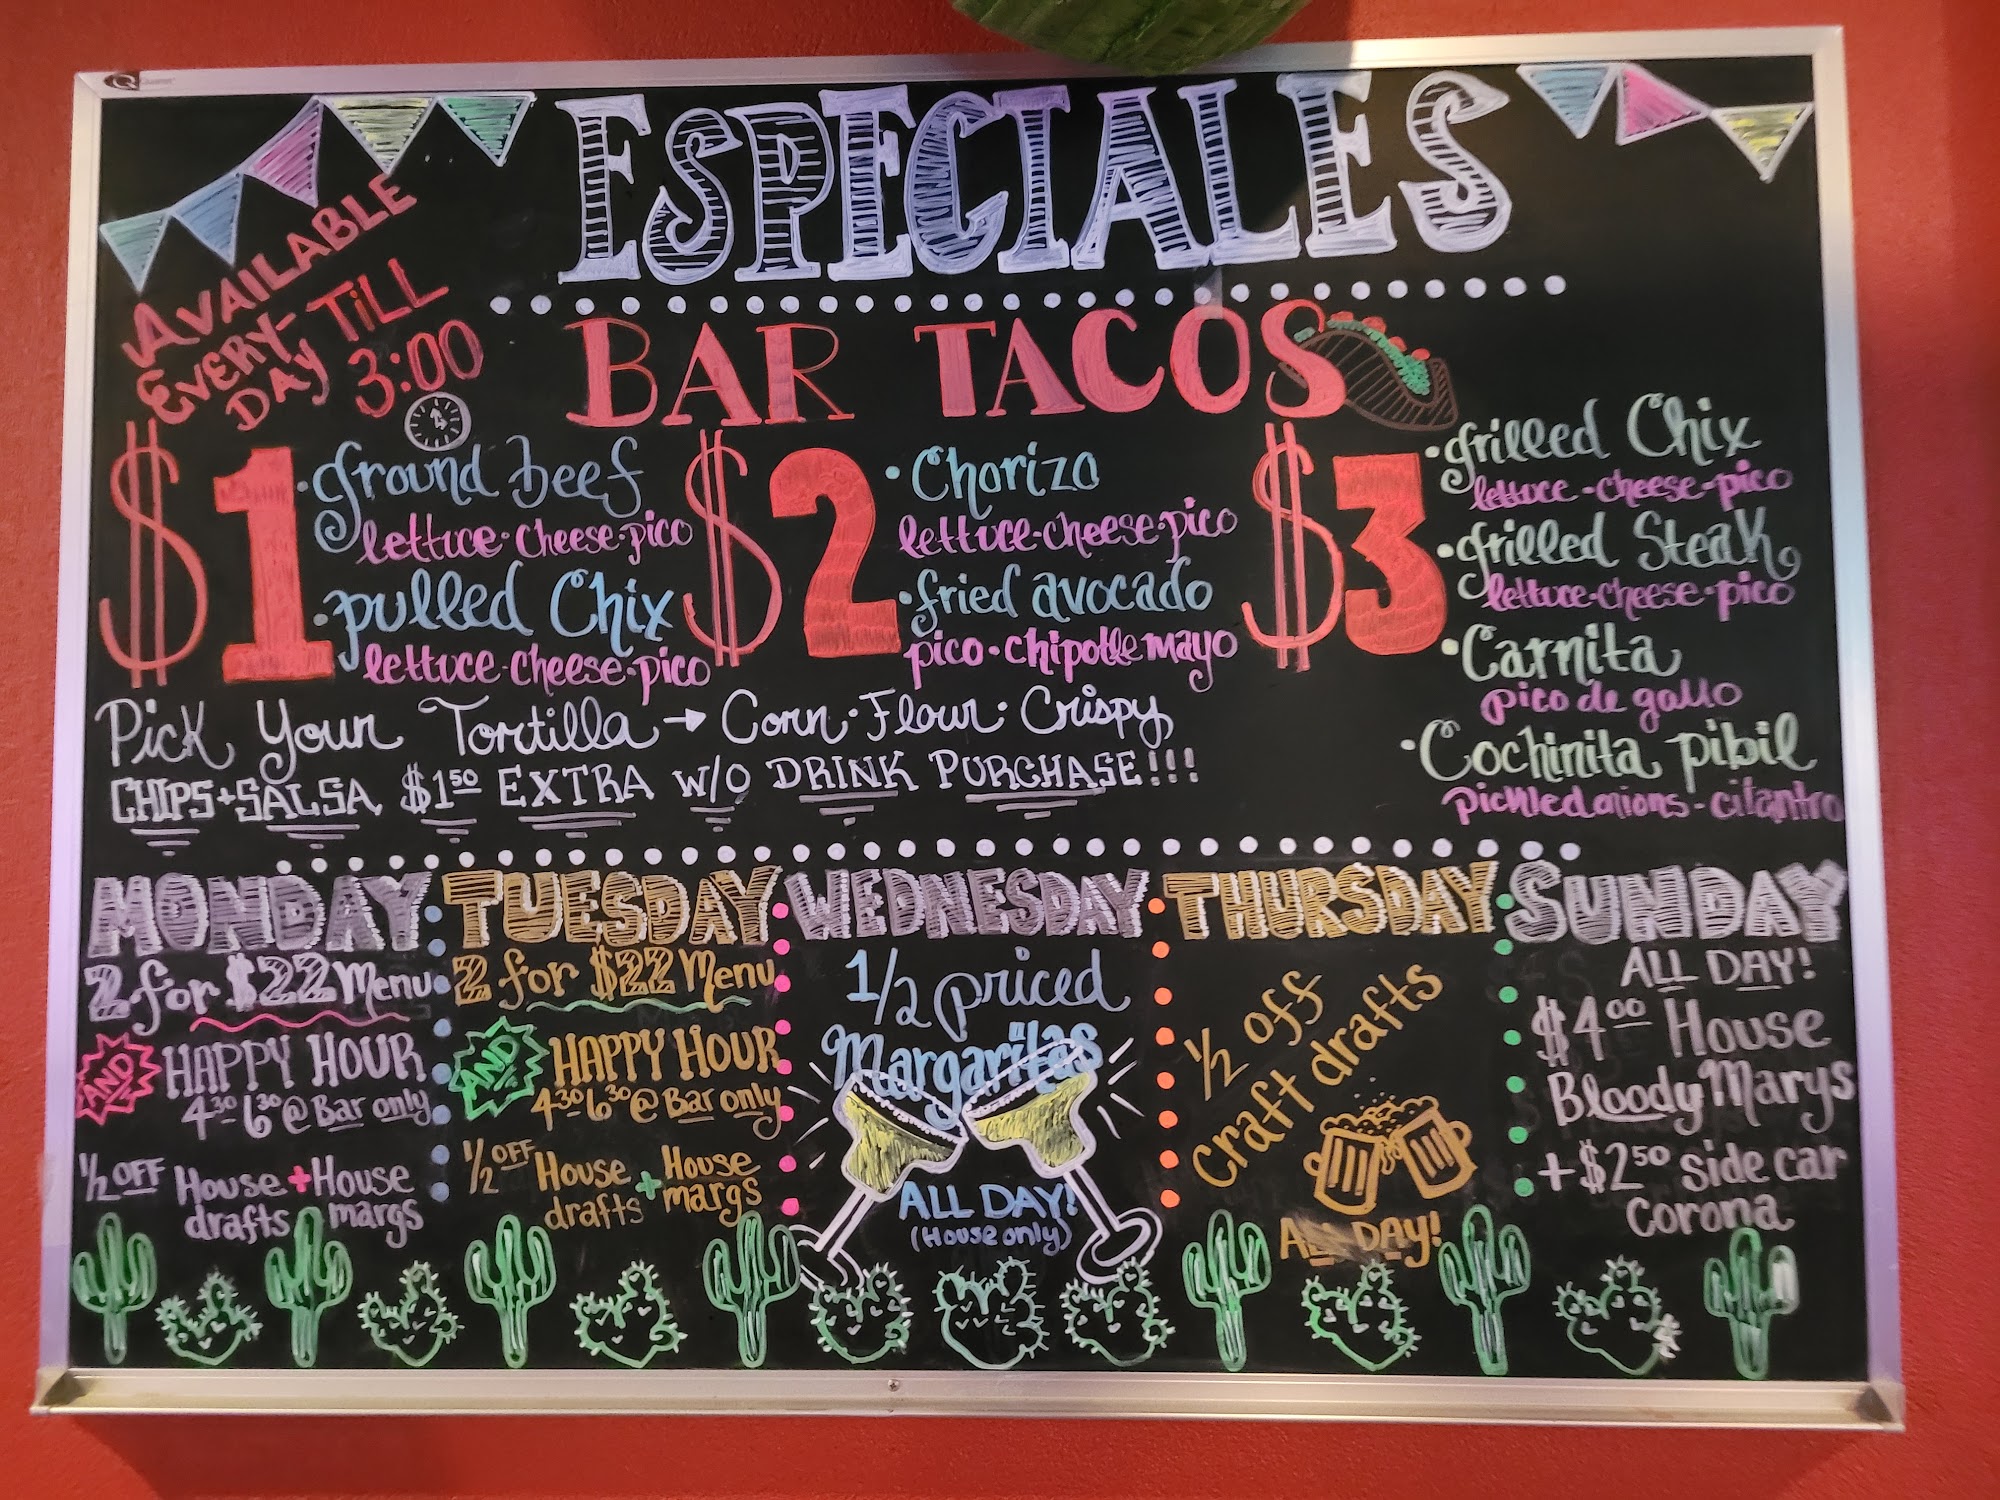 ESPECIALES
AVAILABLE
EVERY-
DAY TiLL
3:00
BAR TACOS
$1
• ground beef
lettuce • cheese • pico
• pulled Chix
lettuce • cheese • pico
$2
• Chorizo
lettuce • cheese • pico
• fried avocado
pico • chipotle mayo
$3
• grilled Chix
lettuce • cheese • pico
• grilled Steak
lettuce • cheese • pico
• Carnita
pico de gallo
• Cochinita pibil
pickled onions - cilantro
Pick Your Tortilla → Corn • Flour • Crispy
CHIPS + SALSA $1.50 EXTRA W/O DRINK PURCHASE!!!
MONDAY
2 for $22 Menu
AND
HAPPY HOUR
4:30 6:30 @ Bar only
1/2 OFF House + House
drafts margs
TUESDAY
2 for $22 Menu
AND
HAPPY HOUR
4:30 6:30 @ Bar only
1/2 OFF House + House
drafts margs
WEDNESDAY
1/2 priced
Margaritas
ALL DAY!
(House only)
THURSDAY
1/2 off
Craft drafts
ALL DAY!
SUNDAY
ALL DAY!
$4.00 House
Bloody Marys
+ $2.50 side car
corona